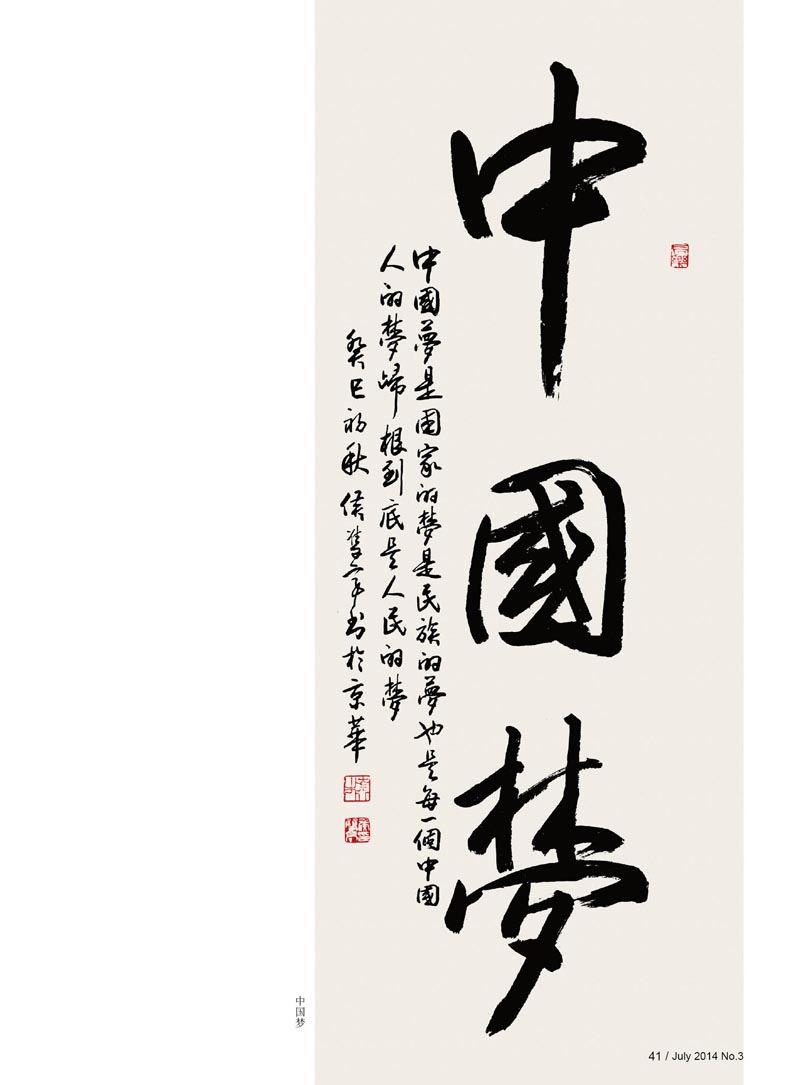 中國梦
中國夢是國家的梦是民族的夢也是每一個中國
人的梦歸根到底是人民的梦
癸巳初秋侯书於京華
中国梦
41 / July 2014 No.3